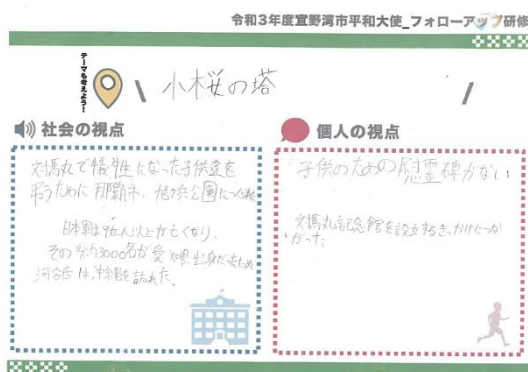 令和3年度宜野湾市平和大使_フォローアップ研修
テーマも考えよう!
\ 小桜の塔 /
社会の視点
個人の視点
対馬丸で犠牲になった子供達を
弔うために那覇市、旭ヶ浜公園につくられ
日本軍は 人以上が亡くなり、
その分の3000名が愛知県出身だったため
河合氏は沖縄を訪れた。
子供のための慰霊碑がない
対馬丸記念館を設立するきっかけにつな
がった